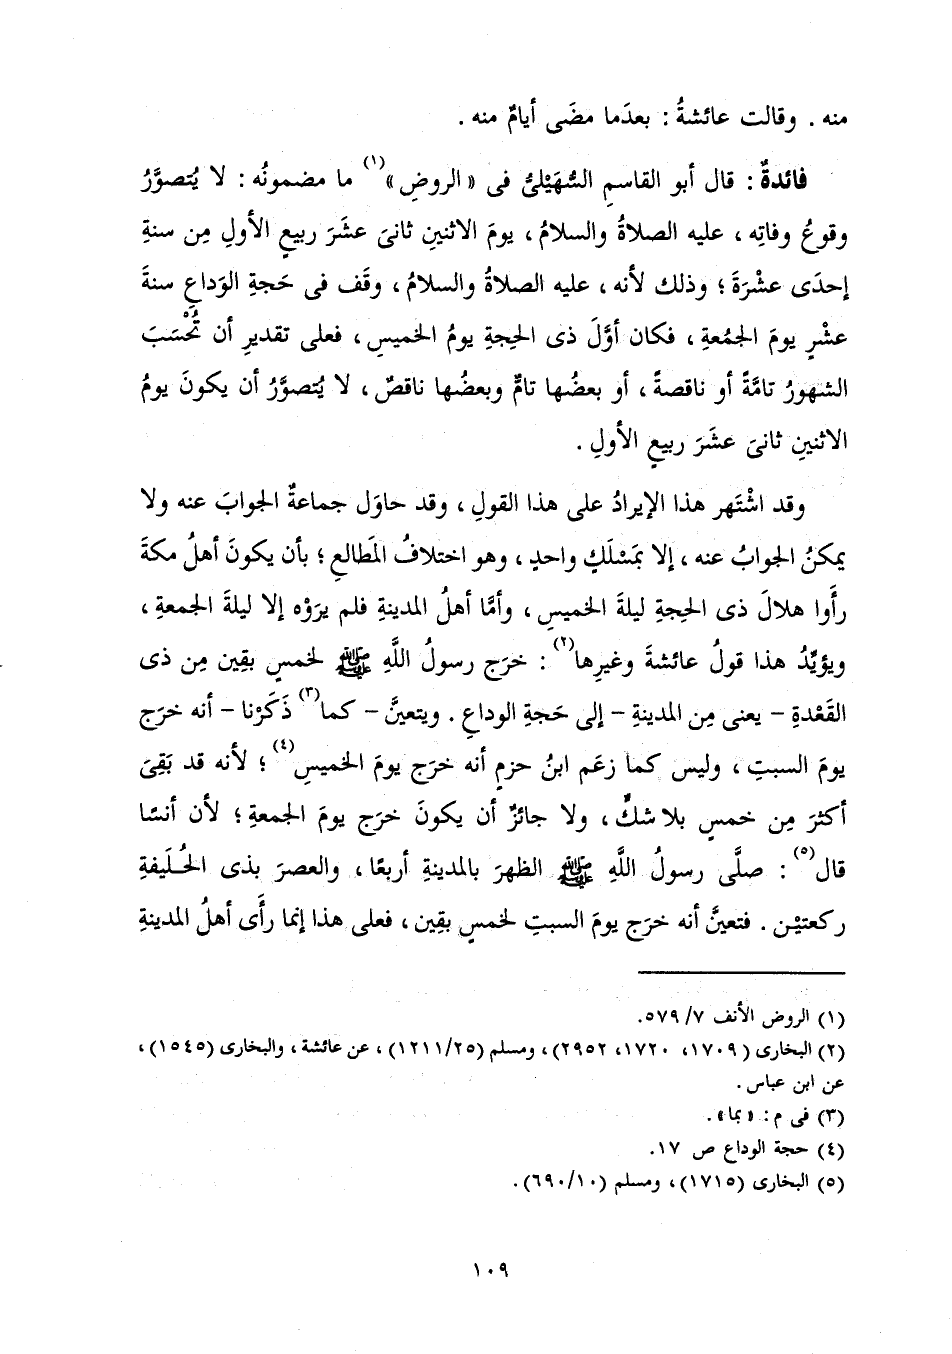 منه . وقالت عائشةُ : بعدَما مضَى أيامٌ منه .
فائدةٌ : قال أبو القاسمِ السُّهَيْلىُّ فى « الروضِ »(١) ما مضمونُه : لا يُتصوَّرُ
وقوعُ وفاتِه ، عليه الصلاةُ والسلامُ ، يومَ الاثنينِ ثانىَ عشَرَ ربيعٍ الأولِ مِن سنةِ
إحدَى عشْرَةَ ؛ وذلك لأنه ، عليه الصلاةُ والسلامُ ، وقَف فى حَجةِ الوَداعِ سنةَ
عشْرٍ يومَ الجمُعةِ ، فكان أوَّلَ ذى الحِجةِ يومُ الخميسِ ، فعلى تقديرِ أن تُحْسَبَ
الشهورُ تامَّةً أو ناقصةً ، أو بعضُها تامٌّ وبعضُها ناقصٌ ، لا يُتصوَّرُ أن يكونَ يومُ
الاثنينِ ثانىَ عشَرَ ربيعٍ الأولِ .
وقد اشْتَهر هذا الإيرادُ على هذا القولِ ، وقد حاوَل جماعةٌ الجوابَ عنه ولا
يمكنُ الجوابُ عنه ، إلا بمَسْلَكٍ واحدٍ ، وهو اختلافُ المَطالعِ ؛ بأن يكونَ أهلُ مكةَ
رأَوا هلالَ ذى الحِجةِ ليلةَ الخميسِ ، وأمَّا أهلُ المدينةِ فلم يرَوْه إلا ليلةَ الجمعةِ ،
ويؤيِّدُ هذا قولُ عائشةَ وغيرِها(٢) : خرَج رسولُ اللَّهِ ﷺ لخمسٍ بقِين مِن ذى
القَعْدةِ - يعنى مِن المدينةِ - إلى حَجةِ الوداعِ . ويتعينُ - كما(٣) ذَكَرْنا - أنه خرَج
يومَ السبتِ ، وليس كما زعَم ابنُ حزمٍ أنه خرَج يومَ الخميسِ(٤) ؛ لأنه قد بَقِىَ
أكثرَ مِن خمسٍ بلا شكٍّ ، ولا جائزٌ أن يكونَ خرَج يومَ الجمعةِ ؛ لأن أنسًا
قال(٥) : صلَّى رسولُ اللَّهِ ﷺ الظهرَ بالمدينةِ أربعًا ، والعصرَ بذى الحُلَيفةِ
ركعتيْن . فتعينَّ أنه خرَج يومَ السبتِ لخمسٍ بقِين ، فعلى هذا إنما رأَى أهلُ المدينةِ
(١) الروض الأنف ٧/ ٥٧٩.
(٢) البخارى (١٧٠٩، ١٧٢٠، ٢٩٥٢)، ومسلم (١٢١١/٢٥) ، عن عائشة ، والبخارى (١٥٤٥) ،
عن ابن عباس .
(٣) فى م : « بما » .
(٤) حجة الوداع ص ١٧.
(٥) البخارى (١٧١٥) ، ومسلم (٦٩٠/١٠) .
١٠٩